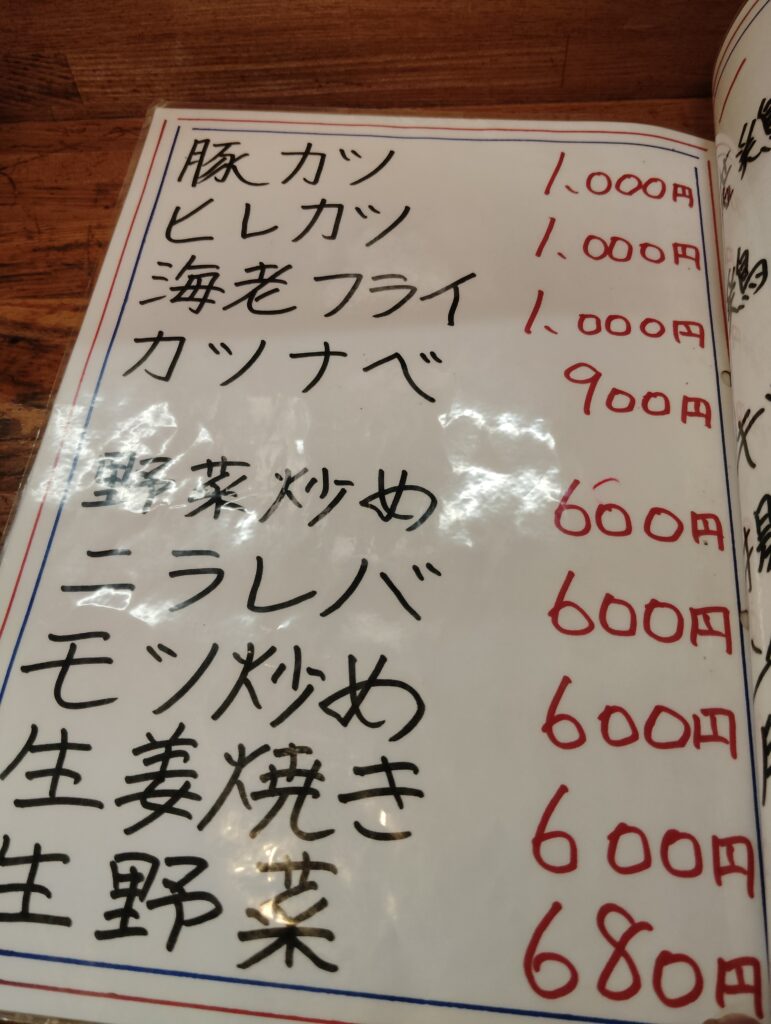 豚カツ 1,000円
ヒレカツ 1,000円
海老フライ 1,000円
カツナベ 900円
野菜炒め 600円
ニラレバ 600円
モツ炒め 600円
生姜焼き 600円
生野菜 680円